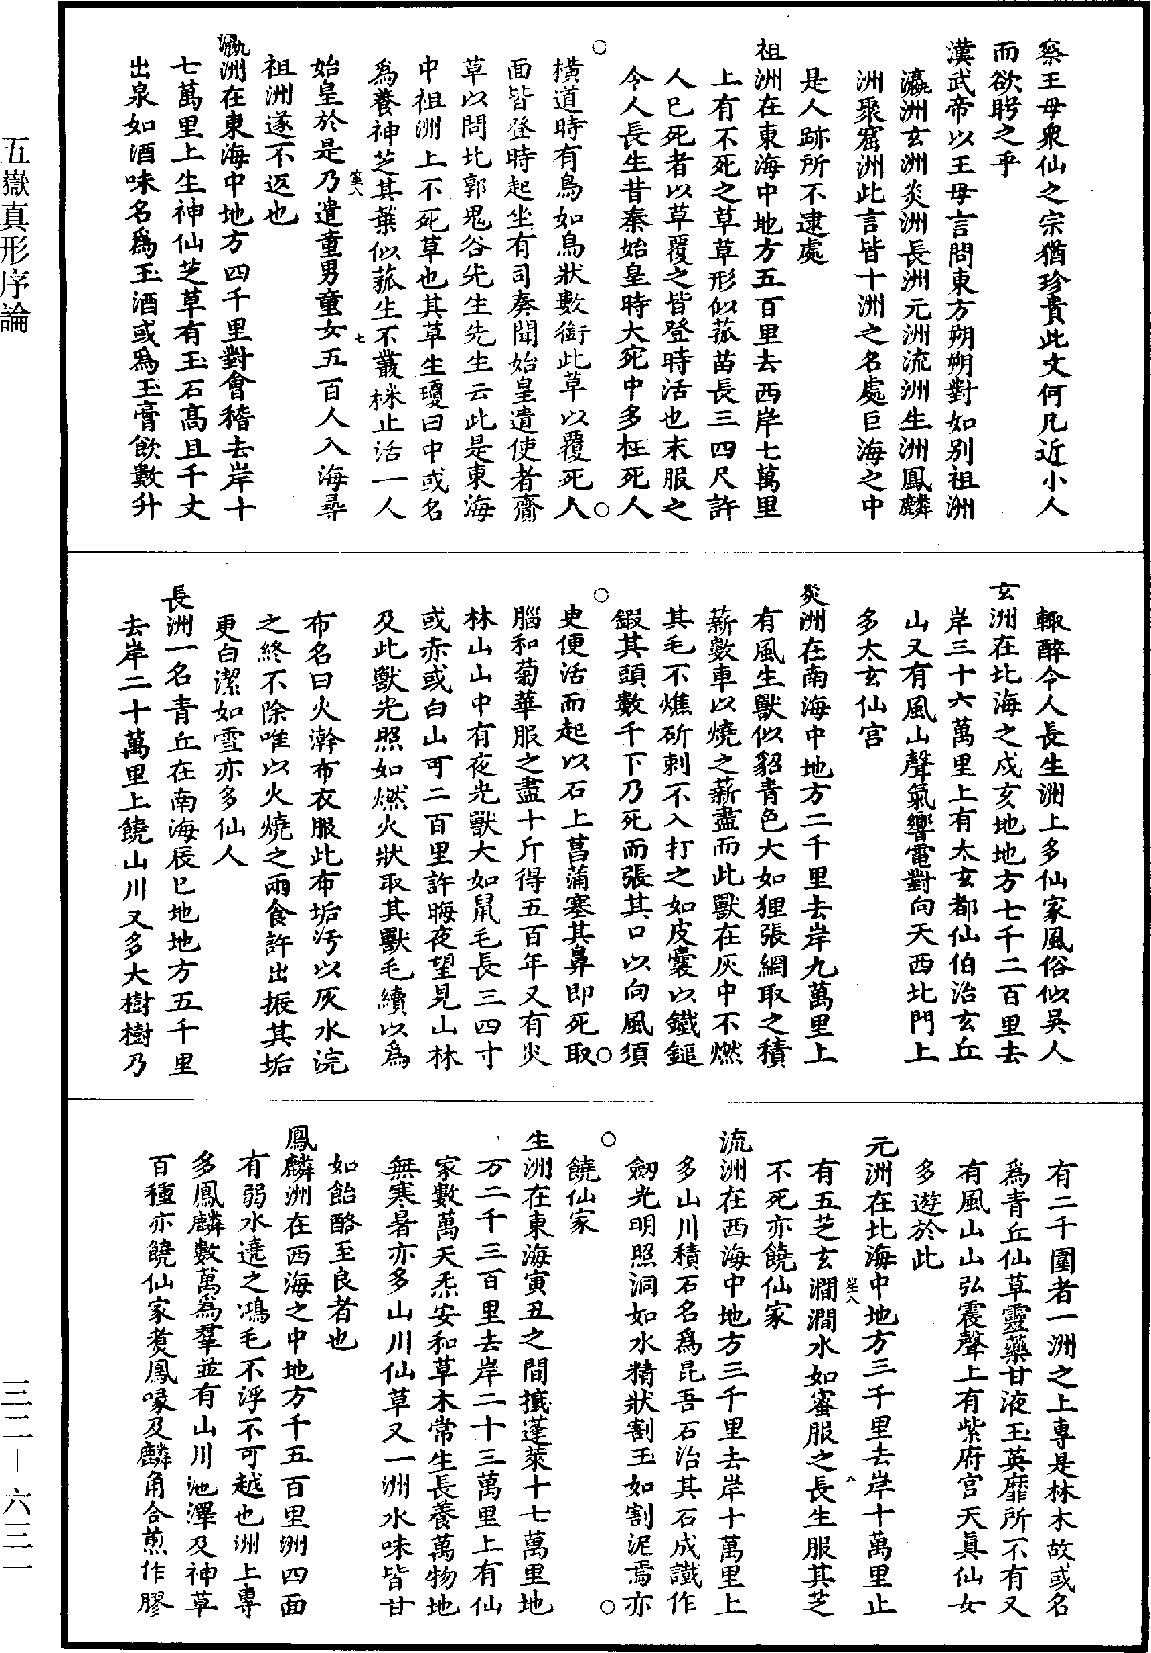 察王母衆仙之宗猶珍貴此文何凡近小人
而欲眄之乎
漢武帝以王母言問東方朔朔對如別祖洲
瀛洲玄洲炎洲長洲元洲流洲生洲鳳麟
洲聚窟洲此言皆十洲之名處巨海之中
是人跡所不逮處
祖洲在東海中地方五百里去西岸七萬里
上有不死之草草形似菰苗長三四尺許
人已死者以草覆之皆登時活也末服之
令人長生昔秦始皇時大宛中多枉死人
橫道時有鳥如烏狀數銜此草以覆死人
面皆登時起坐有司奏聞始皇遣使者齎
草以問北郭鬼谷先生先生云此是東海
中祖洲上不死草也其草生瓊田中或名
為養神芝其葉似菰生不叢株止活一人
始皇於是乃遣童男童女五百人入海尋
祖洲遂不返也
瀛洲在東海中地方四千里對會稽去岸十
七萬里上生神仙芝草有玉石高且千丈
出泉如酒味名為玉酒或為玉膏飲數升
輒醉令人長生洲上多仙家風俗似吳人
玄洲在北海之戍亥地地方七千二百里去
岸三十六萬里上有太玄都仙伯治玄丘
山又有風山聲氣響電對向天西北門上
多太玄仙宮
炎洲在南海中地方二千里去岸九萬里上
有風生獸似貂青色大如狸張網取之積
薪數車以燒之薪盡而此獸在灰中不燃
其毛不燋斫刺不入打之如皮囊以鐵鎚
鍛其頭數千下乃死而張其口以向風須
臾便活而起以石上菖蒲塞其鼻即死取
腦和菊華服之盡十斤得五百年又有火
林山山中有夜光獸大如鼠毛長三四寸
或赤或白山可二百里許晦夜望見山林
及此獸光照如燃火狀取其獸毛績以為
布名曰火澣布衣服此布垢汚以灰水浣
之終不除唯以火燒之兩食許出振其垢
更白潔如雪亦多仙人
長洲一名青丘在南海辰巳地地方五千里
去岸二十萬里上饒山川又多大樹樹乃
有二千圍者一洲之上專是林木故或名
為青丘仙草靈藥甘液玉英靡所不有又
有風山山弘震聲上有紫府宮天真仙女
多遊於此
元洲在北海中地方三千里去岸十萬里止
有五芝玄澗澗水如蜜服之長生服其芝
不死亦饒仙家
流洲在西海中地方三千里去岸十萬里上
多山川積石名為昆吾石治其石成鐵作
劒光明照洞如水精狀割玉如割泥焉亦
饒仙家
生洲在東海寅丑之間攕蓬萊十七萬里地
方二千三百里去岸二十三萬里上有仙
家數萬天炁安和草木常生長養萬物地
無寒暑亦多山川仙草又一洲水味皆甘
如飴酪至良者也
鳳麟洲在西海之中地方千五百里洲四面
有弱水遶之鴻毛不浮不可越也洲上專
多鳳麟數萬為羣並有山川池澤及神草
百種亦饒仙家煑鳳喙及麟角合煎作膠
五嶽真形序論
三二—六三一